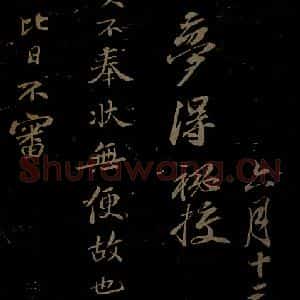 六月十二
夢得秘校
不奉狀無便故也
比日不審
Shufawang.CN